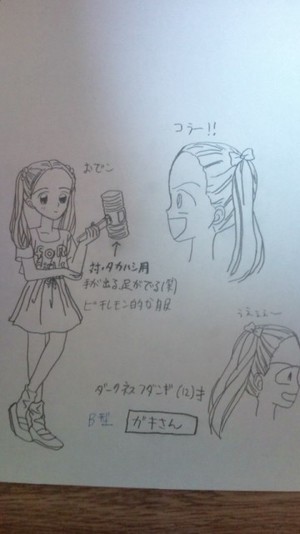 コラー!!
おでこ
対・タカハシ用
手が出る、足がでる(笑)
ピチレモン的な服
うえぇぇ〜
ダークネスフダンギ(12)才
B型
ガキさん